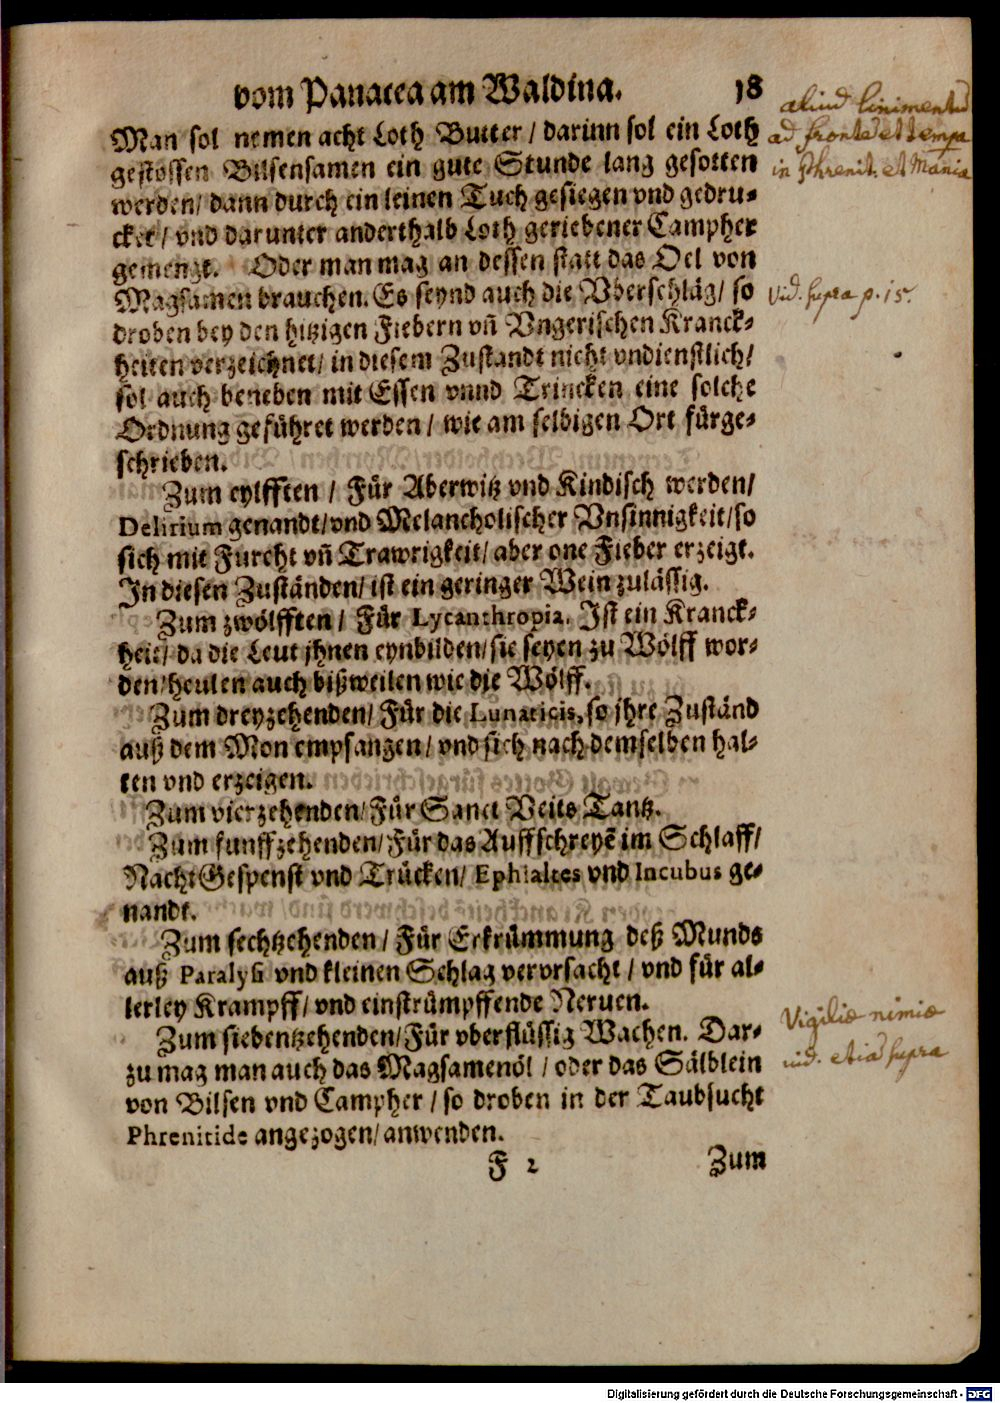 vom Panacea am Waldina. 18
Man sol nemen acht Loth Butter / darinn sol ein Loth
gestossen Bilsensamen ein gute Stunde lang gesotten
werden / dann durch ein leinen Tuch gesiegen vnd gedru-
cket / vnd darunter anderthalb Loth geriebener Campher
gemengt. Oder man mag an dessen statt das Oel von
Magsamen brauchen. Es seynd auch die Vberschläg / so
droben bey den hitzigen Fiebern vn̄ Vngerischen Kranck-
heiten verzeichnet / in diesem Zustandt nicht vndienstlich /
sol auch beneben mit Essen vnnd Trincken eine solche
Ordnung geführet werden / wie am selbigen Ort fürge-
schrieben.
Zum eylfften / Für Aberwitz vnd Kindisch werden /
Delirium genandt / vnd Melancholischer Vnsinnigkeit / so
sich mit Furcht vn̄ Trawrigkeit / aber one Fieber erzeigt.
In diesen Zuständen / ist ein geringer Wein zulässig.
Zum zwölfften / Für Lycanthropia. Ist ein Kranck-
heit / da die Leut jhnen eynbilden / sie seyen zu Wölff wor-
den / heulen auch bißweilen wie die Wölff.
Zum dreyzehenden / Für die Lunaticis, so jhre Zuständ
auß dem Mon empfangen / vnd sich nach demselben hal-
ten vnd erzeigen.
Zum vierzehenden / Für Sanct Veits Tantz.
Zum funffzehenden / Für das Auffschreyē im Schlaff /
Nacht Gespenst vnd Trücken / Ephialtes vnd Incubus ge-
nandt.
Zum sechtzehenden / Für Erkrümmung deß Munds
auß Paralysi vnd kleinen Schlag vervrsacht / vnd für al-
lerley Krampff / vnd einstrümpffende Neruen.
Zum siebentzehenden / Für vberflüssig Wachen. Dar-
zu mag man auch das Magsamenöl / oder das Sälblein
von Bilsen vnd Campher / so droben in der Taubsucht
Phrenitide angezogen / anwenden.
F 2 Zum
aliud linimentū
ad frontē et tempa
in Phrenit. et Mania
Vid. supra p. 15.
Vigiliæ nimiæ
vid. etiā supra
Digitalisierung gefördert durch die Deutsche Forschungsgemeinschaft - DFG